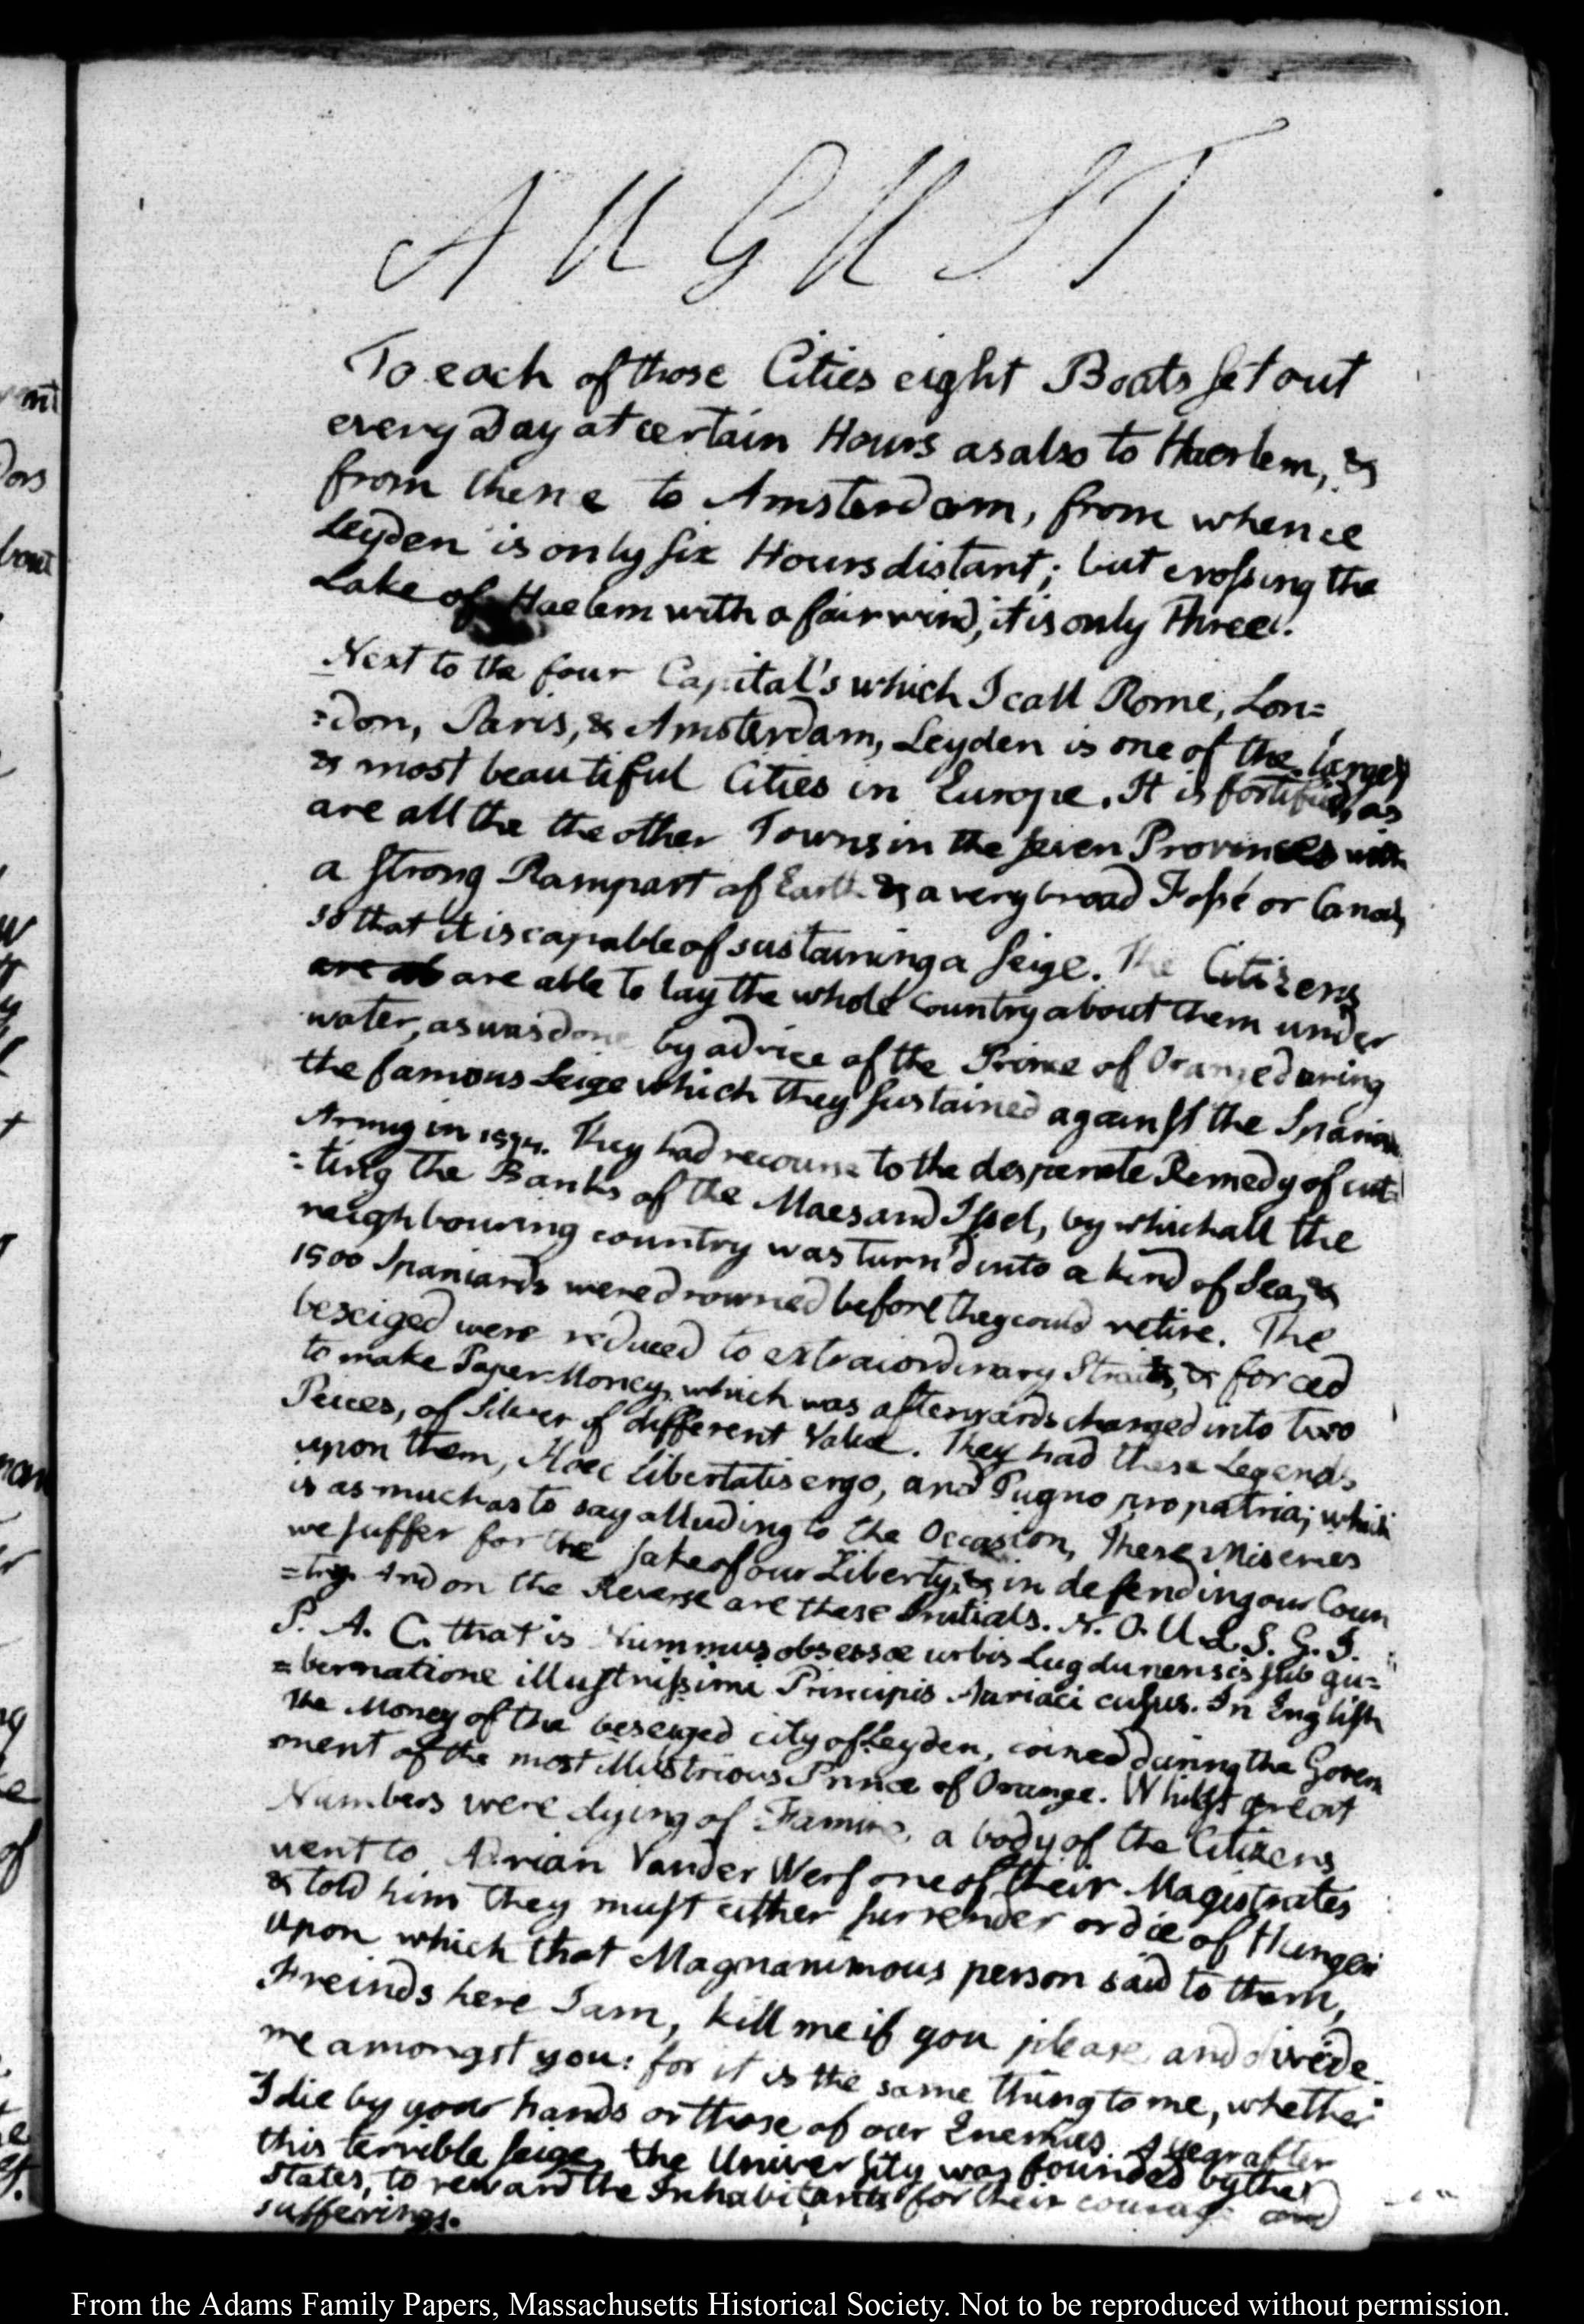 AUGUST
To each of those Cities eight Boats set out
every Day at certain Hours as also to Haerlem, &
from thence to Amsterdam, from whence
Leyden is only six Hours distant; but crossing the
Lake of Haelem with a fair wind, it is only three.
Next to the four Capital's which I call Rome, Lon=
=don, Paris, & Amsterdam, Leyden is one of the largest
& most beautiful Cities in Europe. It is fortified, as
are all the the other Towns in the seven Provinces with
a strong Rampart of Earth & a very broad Fossé or Canal,
so that it is capable of sustaining a seige. The Citizens
are ab are able to lay the whole country about them under
water, as was done by advice of the Prince of Orange during
the famous Seige which they sustained against the Spanish
Army in 1574. They had recourse to the desperate Remedy of cut=
=ting the Banks of the Maes and Issel, by which all the
neighbouring country was turn'd into a kind of Sea, &
1500 Spaniards were drowned before they could retire. The
beseiged were reduced to extraiordinary Straits, & forced
to make Paper-Money, which was afterwards changed into two
Peices, of Silver of different Value. They had these Legends
upon them, Haec libertatis ergo, and Pugno pro patria; which
is as much as to say alluding to the Occasion, These Miseries
we suffer for the sake of our Liberty, & in defending our Coun
=try. And on the Reverse are these Initials. N. O. U. L. S. G. I.
P. A. C. that is Nummus obsessae urbis Lugdunensis sub gu=
=bernatione illustrissimi Principis Auriaci cusus. In English
The Money of the beseiged city of Leyden, coined during the Govern
ment of the most Illustrious Prince of Orange. Whilst great
Numbers were dying of Famine, a body of the Citizens
went to Adrian Vander Werf one of their Magistrates
& told him they must either surrender or die of Hunger
upon which that Magnanimous person said to them,
Freinds here I am, kill me if you please and divide
me amongst you: for it is the same thing to me, whether
I die by your hands or those of our Enemies. A year after
this terrible seige, the University was founded by the
States, to reward the Inhabitants for their courage and
sufferings.
From the Adams Family Papers, Massachusetts Historical Society. Not to be reproduced without permission.